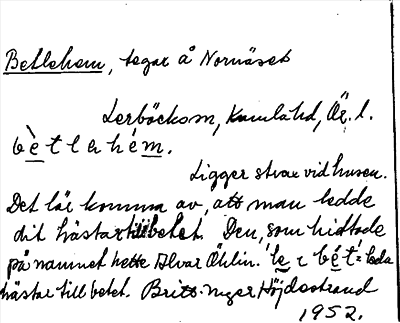 Betlehem, tegar å Nornäset
Lerböcks sn, Kumla hd, Ör. l.
bètlehém.
Ligger strax vid husen.
Det lär komma av, att man ledde
dit hästar till betet. Den, som hittade
på namnet hette Alvar Öhlin. 'le = bét' = leda
hästar till betet. Britt-Inger Höjdestrand
1952.